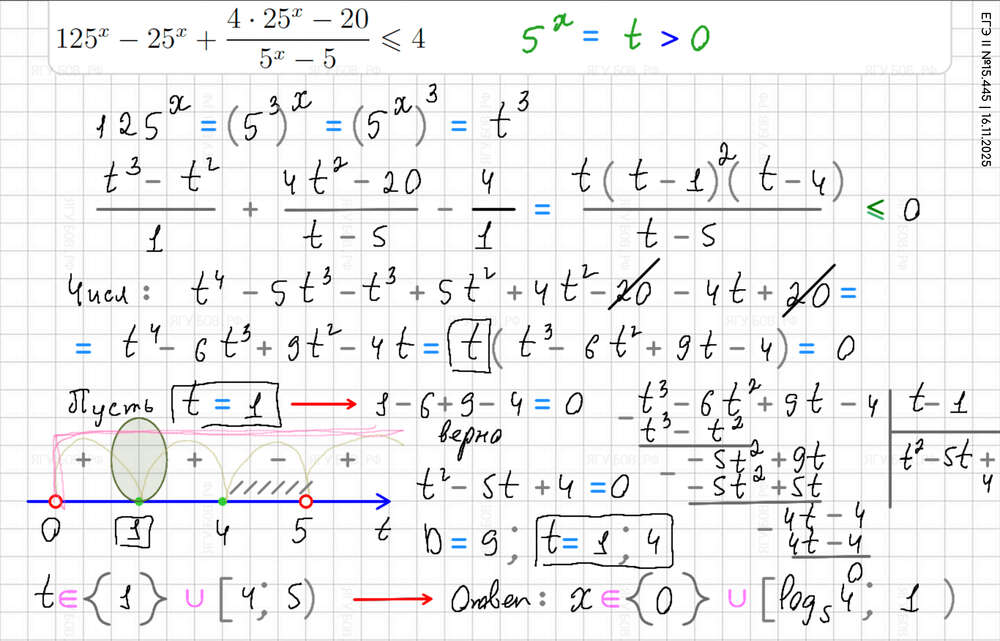 125^x − 25^x + (4 · 25^x − 20)/(5^x − 5) ⩽ 4
5^x = t > 0
ЕГЭ II №15.445 | 16.11.2025
125^x = (5^3)^x = (5^x)^3 = t^3
(t^3 − t^2)/1 + (4t^2 − 20)/(t − 5) − 4/1 = t(t − 1)^2(t − 4)/(t − 5) ⩽ 0
Числ: t^4 − 5t^3 − t^3 + 5t^2 + 4t^2 − 20 − 4t + 20 =
= t^4 − 6t^3 + 9t^2 − 4t = t(t^3 − 6t^2 + 9t − 4) = 0
Пусть t = 1 → 1 − 6 + 9 − 4 = 0
верно
− t^3 − 6t^2 + 9t − 4 | t − 1
t^3 − t^2 | t^2 − 5t + 4
− − 5t^2 + 9t
− 5t^2 + 5t
− 4t − 4
4t − 4
0
+ + − +
0 1 4 5 t
t^2 − 5t + 4 = 0
D = 9; t = 1; 4
t ∈ {1} ∪ [4; 5) → Ответ: x ∈ {0} ∪ [log_5 4; 1)